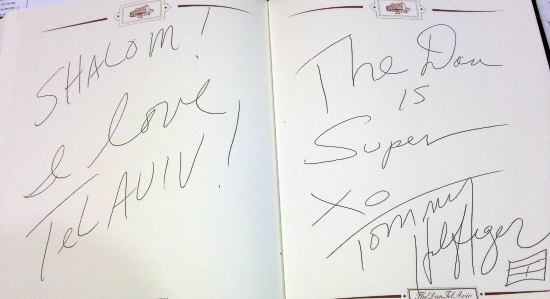 SHALOM!
I love
Tel AVIV!
The Dan
is
Super
XO
Tommy
Hilfiger
The Dan Tel Aviv